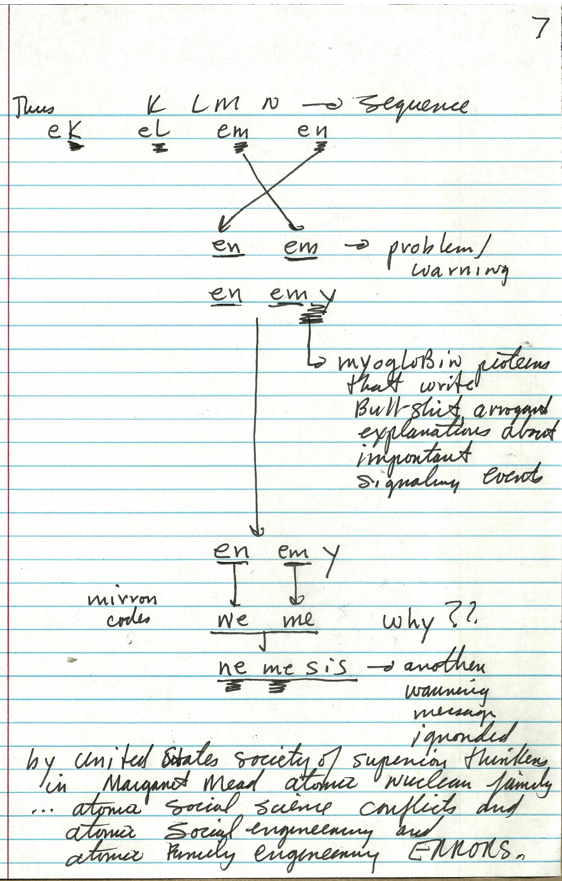 7
Thus K L M N → Sequence
eK eL em en
en em → problem/
warning
en em y
myogloBin proteins
that write
Bull-shit, arrogant
explanations about
important
signaling events
en em y
mirror
codes
ne me why ??
ne me sis → another
warning
message
ignorded
by United States society of superior thinkers
in Margaret Mead atomic nuclear family
... atomic social science conflicts and
atomic Social engineering and
atomic Family engineering ERRORS.